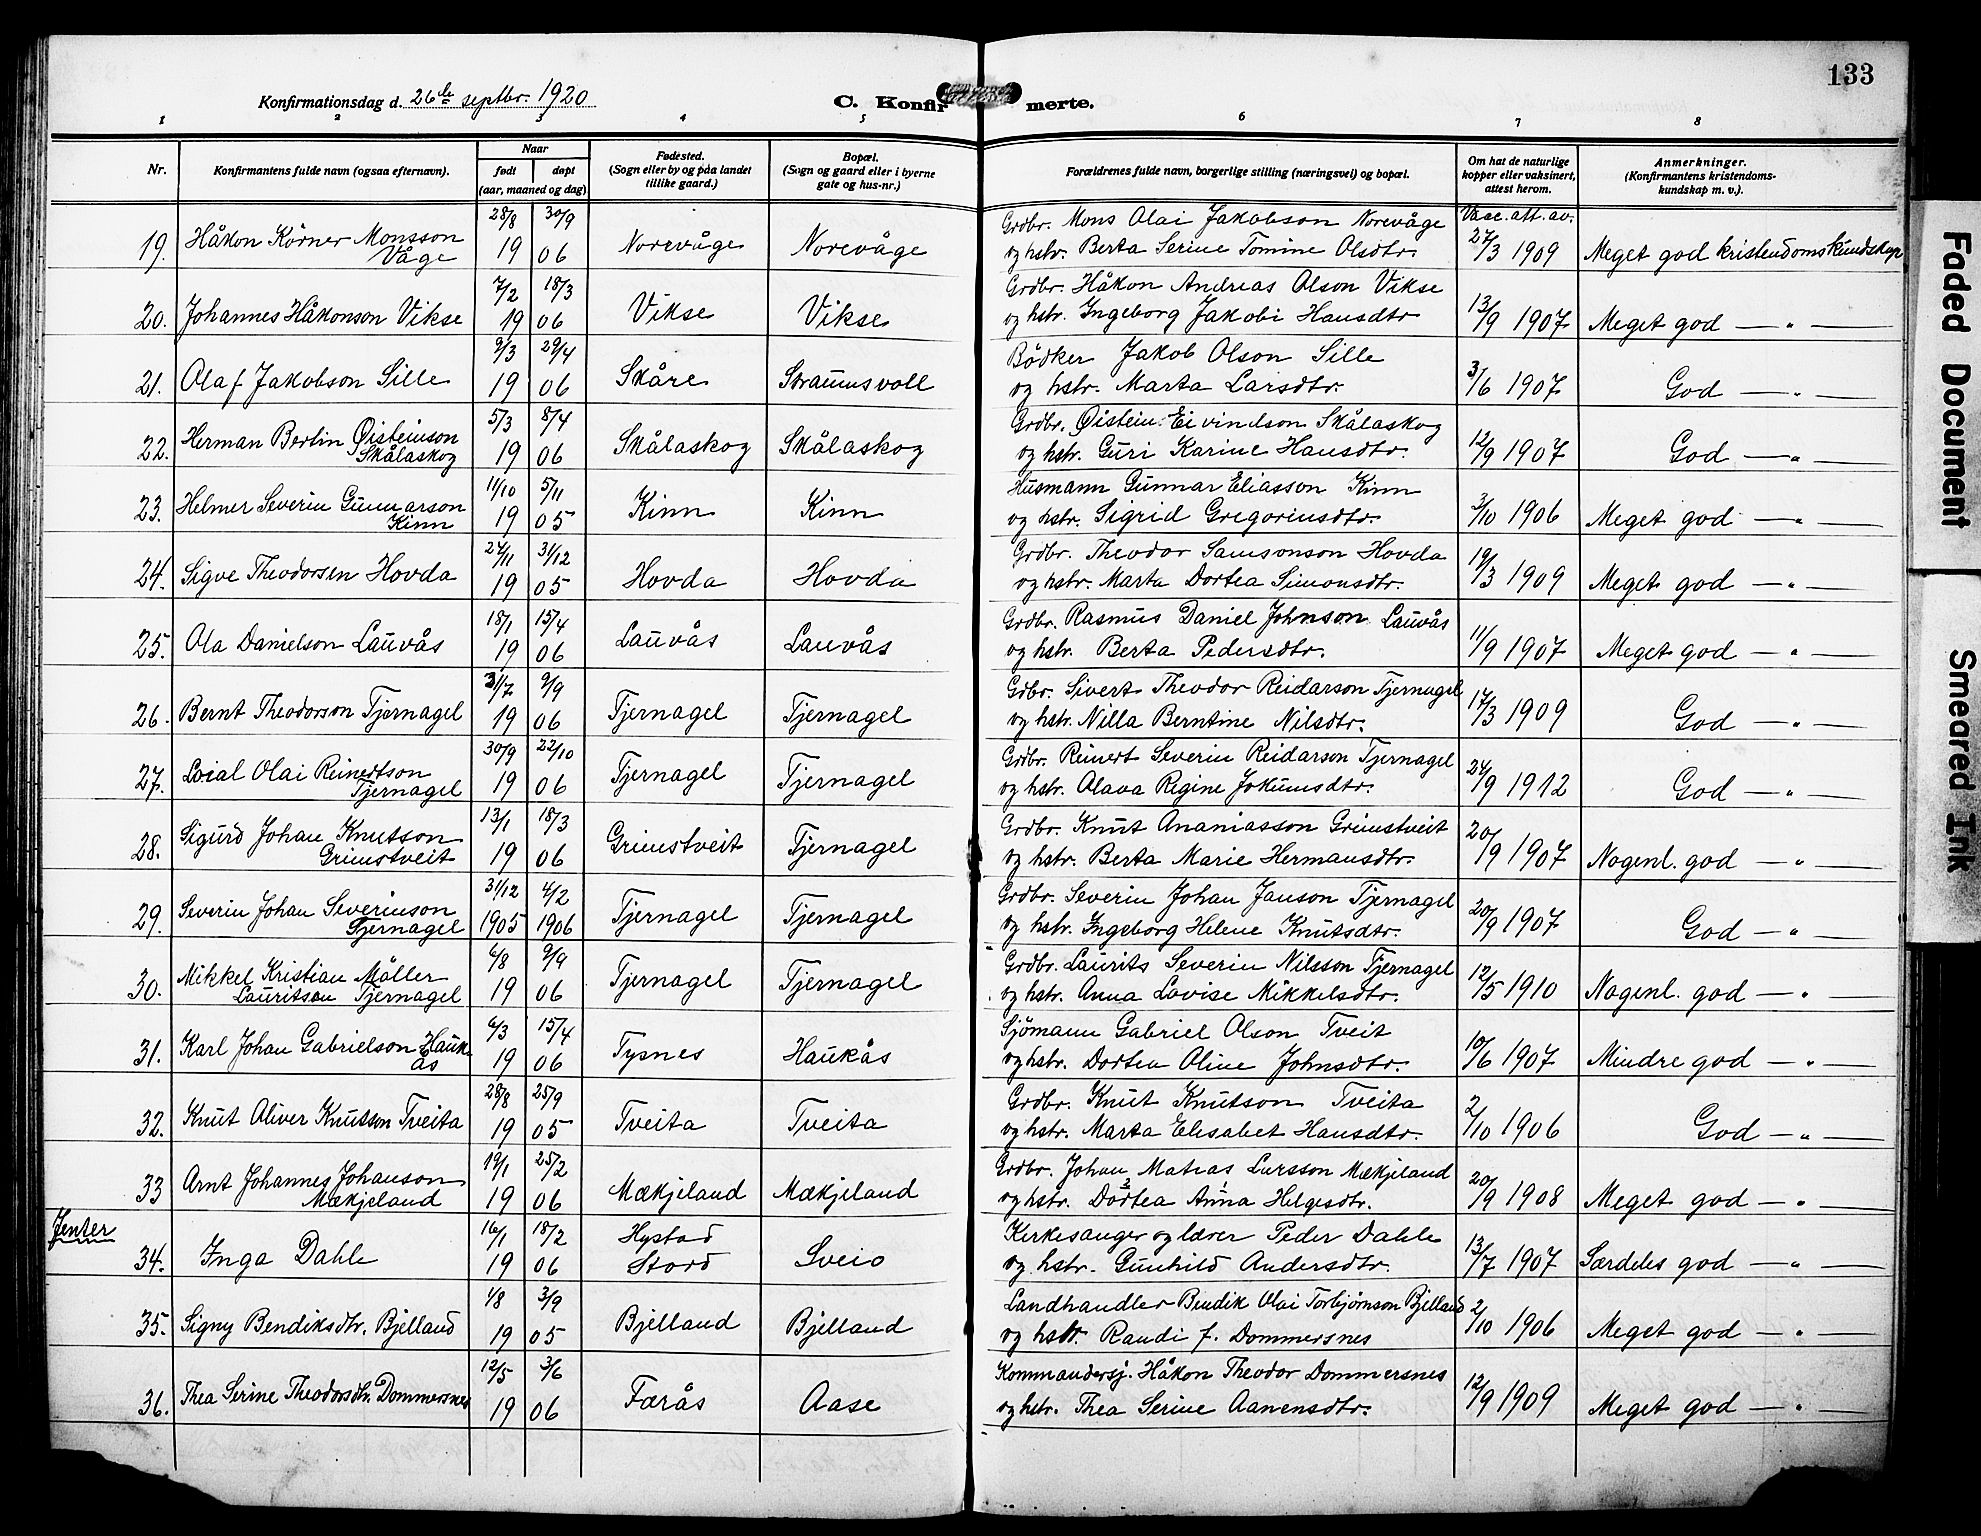 133
Konfirmationsdag d. 26de septbr. 1920
C. Konfirmerte.
1 2 3 4 5 6 7 8
Nr.
Konfirmantens fulde navn (ogsaa efternavn).
Naar
født
døpt
(aar, maaned og dag)
Fødested.
(Sogn eller by og paa landet
tillike gaard.)
Bopæl.
(Sogn og gaard eller i byerne
gate og hus-nr.)
Forældrenes fulde navn, borgerlige stilling (næringsvei) og bopæl.
Om hat de naturlige
kopper eller vaksinert,
attest herom.
Anmerkninger.
(Konfirmantens kristendoms-
kundskap m. v.).
28/8 30/9 Grdbr. Mons Olai Jakobson Norevåge Vacc. att. av.
19. Håkon Körner Monsson Våge 19 06 Norevåge Norevåge og hstr. Berta Serine Tomine Olsdtr. 27/3 1909 Meget god kristendomskundskap
7/2 18/3 Grdbr. Håkon Andreas Olson Vikse
20. Johannes Håkonson Vikse 19 06 Vikse Vikse og hstr. Ingeborg Jakobi Hansdtr 13/9 1907 Meget god — „ —
9/3 29/4 Bödker Jakob Olson Sille
21. Olaf Jakobson Sille 19 06 Skåre Straumsvoll og hstr. Marta Larsdtr. 3/6 1907 God — „ —
5/3 8/4 Grdbr. Øistein Eivindson Skålaskog
22. Herman Bertin Øisteinson Skålaskog 19 06 Skålaskog Skålaskog og hstr. Guri Karine Hansdtr. 12/9 1907 God — „ —
11/10 5/11 Husmann Gunnar Eliasson Kinn
23. Helmer Severin Gunnarson Kinn 19 05 Kinn Kinn og hstr. Sigrid Gregoriusdtr. 3/10 1906 Meget god — „ —
27/11 31/12 Grdbr. Theodor Samsonson Hovda
24. Sigve Theodorsen Hovda 19 05 Hovda Hovda og hstr. Marta Dortea Simonsdtr. 19/3 1909 Meget god — „ —
18/1 15/4 Grdbr. Rasmus Daniel Johnson Lauvås
25. Ola Danielson Lauvås 19 06 Lauvås Lauvås og hstr. Berta Pedersdtr. 11/9 1907 Meget god — „ —
31/7 9/9 Grdbr. Sivert Theodor Reidarson Tjernagel
26. Bernt Theodorson Tjernagel 19 06 Tjernagel Tjernagel og hstr. Nilla Berntine Nilsdtr. 17/3 1909 God — „ —
30/9 22/10 Grdbr. Reinert Severin Reidarson Tjernagel
27. Loial Olai Reinertson Tjernagel 19 06 Tjernagel Tjernagel og hstr. Olava Regine Jokumsdtr. 24/9 1912 God — „ —
13/1 18/3 Grdbr. Knut Ananiasson Grimstveit
28. Sigurd Johan Knutson Grimstveit 19 06 Grimstveit Tjernagel og hstr. Berta Marie Hermansdtr. 20/9 1907 Nogenl. god — „
31/12 4/2 Grdbr. Severin Johan Janson Tjernagel
29. Severin Johan Severinson Tjernagel 1905 1906 Tjernagel Tjernagel og hstr. Ingeborg Helene Knutsdtr. 20/9 1907 God — „ —
6/8 9/9 Grdbr. Laurits Severin Nilsson Tjernagel
30. Mikkel Kristian Möller Lauritson Tjernagel 19 06 Tjernagel Tjernagel og hstr. Anna Lovise Mikkelsdtr. 12/5 1910 Nogenl. god — „ —
6/3 15/4 Sjömann Gabriel Olson Tveit
31. Karl Johan Gabrielson Haukås 19 06 Tysnes Haukås og hstr. Dortea Oline Johnsdtr. 10/6 1907 Mindre god — „ —
28/8 25/9 Grdbr. Knut Knutson Tveita
32. Knut Oliver Knutsson Tveita 19 05 Tveita Tveita og hstr. Marta Elisabet Hansdtr. 2/10 1906 God — „ —
19/1 25/2 Grdbr. Johan Matias Larsson Mækjeland
33 Arnt Johannes Johanson Mækjeland 19 06 Mækjeland Mækjeland og hstr. Dortea Anna Helgesdtr. 20/9 1908 Meget god — „
Jenter
16/1 18/2 Hystad Kirkesanger og lærer Peder Dahle
34. Inga Dahle 19 06 Stord Sveio og hstr. Gunhild Andersdtr. 13/7 1907 Særdeles god — „ —
1/8 3/9 Landhandler Bendik Olai Torbjørnson Bjelland
35. Signy Bendiksdtr. Bjelland 19 05 Bjelland Bjelland og hstr. Randi f. Dommersnes 2/10 1906 Meget god — „ —
12/5 3/6 Kommandersj. Håkon Theodor Dommersnes
36. Thea Serine Theodorsdtr. Dommersnes 19 06 Færås Aase og hstr. Thea Serine Aanensdtr. 12/9 1909 Meget god — „ —
Faded Document
Smeared Ink